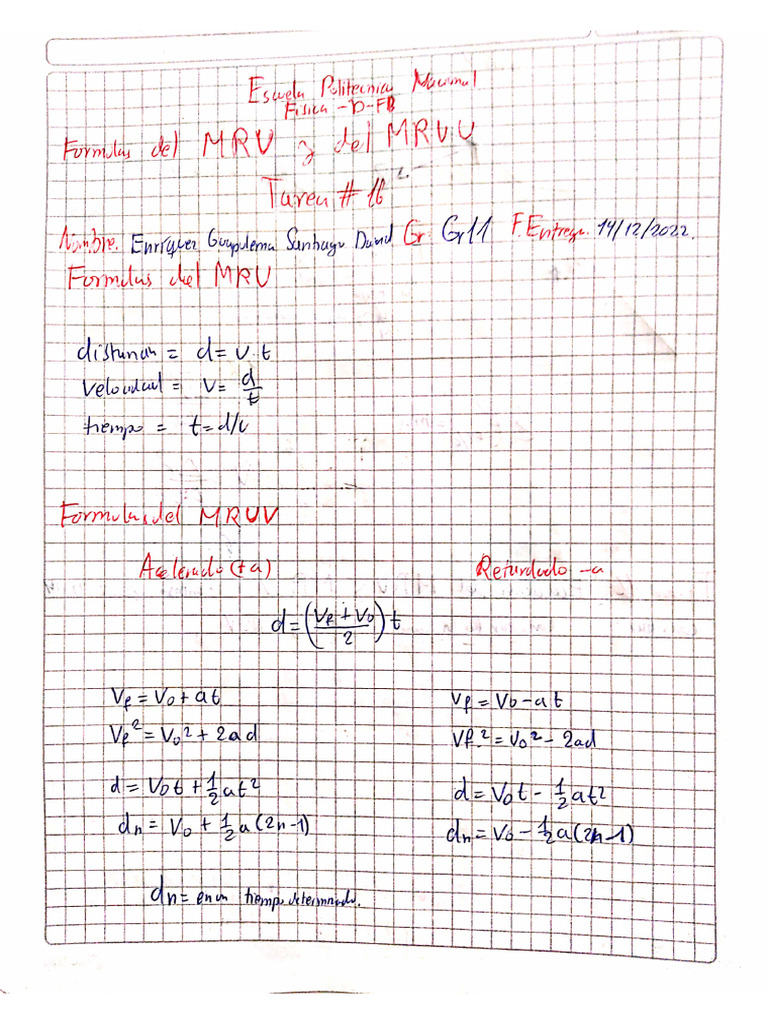 Escuela Politecnica Nacional
Fisica -D-FB
Formulas del MRU y del MRUV
Tarea # 16
Nombre. Enriquez Guapulema Santiago David Gr: Gr11 F.Entrega. 14/12/2022.
Formulas del MRU
distancia = d= v.t
velocidad = v= d/t
tiempo = t=d/v
Formulas del MRUV
Acelerado (+a) Retardado -a
d=((Vf+Vo)/2)t
Vf=Vo+at Vf=Vo-at
Vf²=Vo²+2ad Vf²=Vo²-2ad
d=Vot+½at² d=Vot-½at²
dn=Vo+½a(2n-1) dn=Vo-½a(2n-1)
dn= en un tiempo determinado.